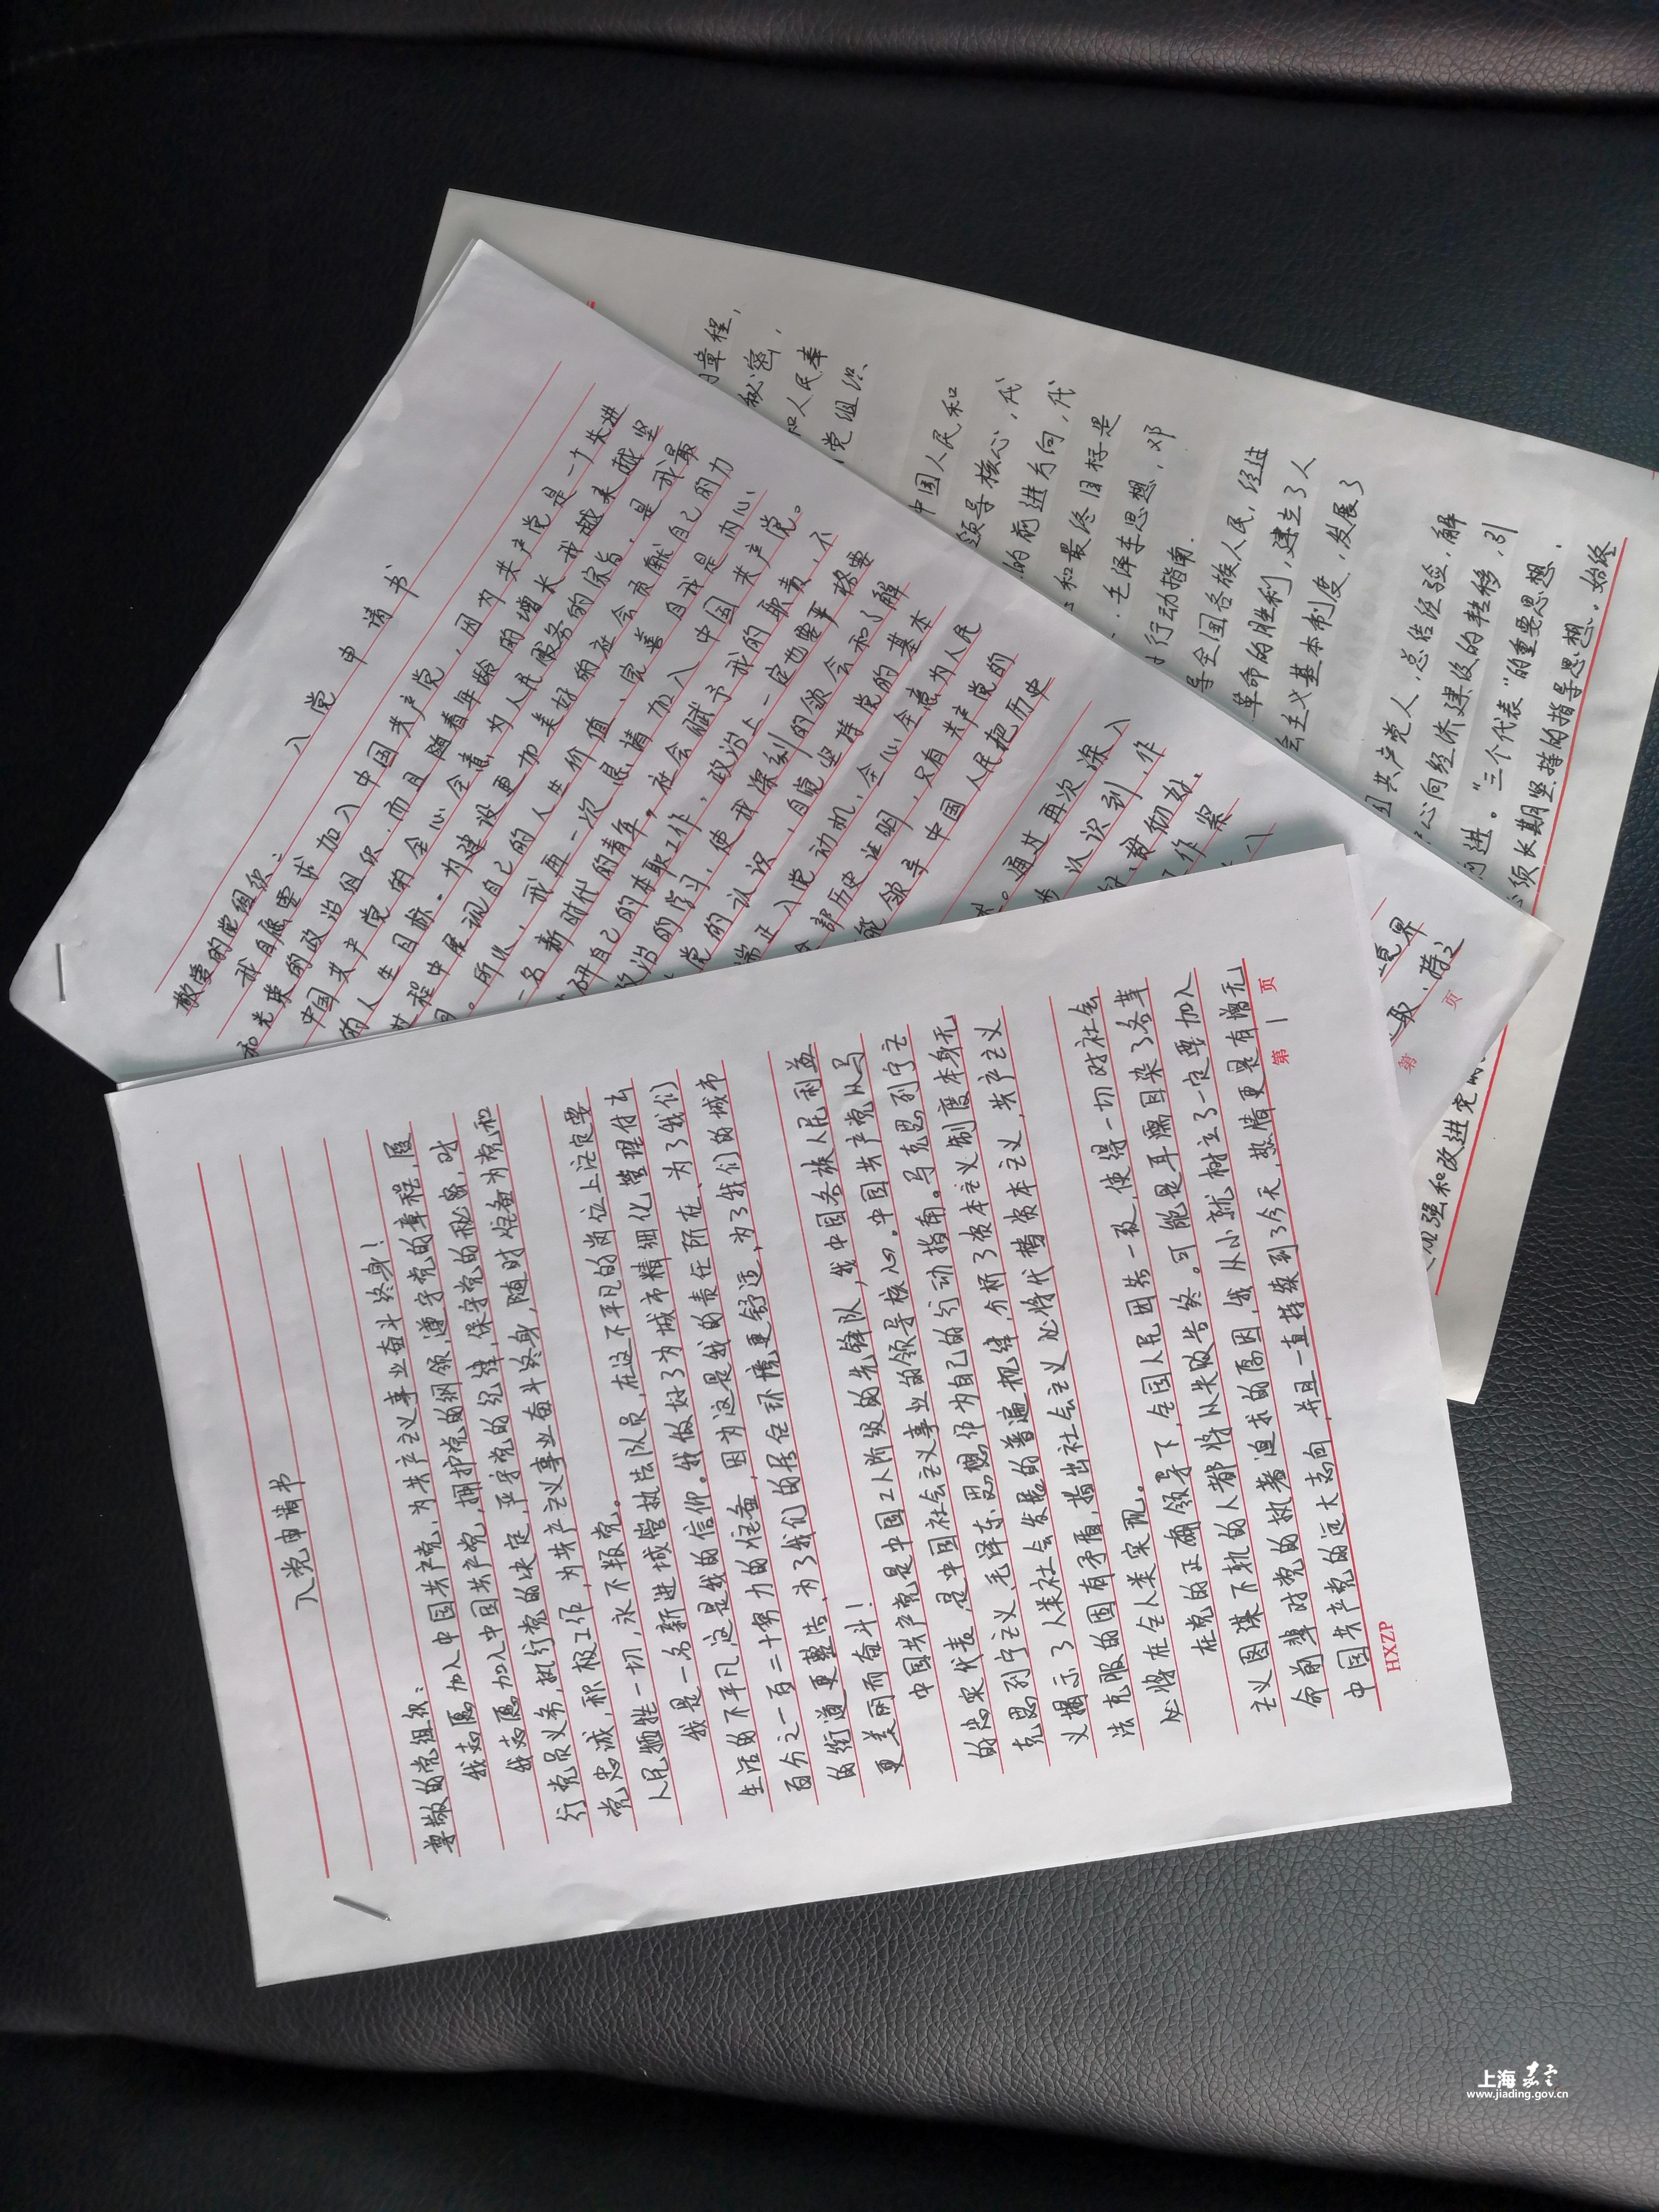 入党申请书
尊敬的党组织：
我志愿加入中国共产党，为共产主义事业奋斗终身！
我志愿加入中国共产党，拥护党的纲领，遵守党的章程，履
行党员义务，执行党的决定，严守党的纪律，保守党的秘密，对
党忠诚，积极工作，为共产主义事业奋斗终身，随时准备为党和
人民牺牲一切，永不叛党。
我是一名新进城管执法队员，在这不平凡的岗位上注定要
生活的不平凡，这是我的信仰。我做好了为城市精细化管理付出
百分之一百二十努力的准备，因为这是我的责任所在、为了我们
的街道更整洁，为了我们的居住环境更舒适，为了我们的城市
更美丽而奋斗！
中国共产党是中国工人阶级的先锋队，我中国各族人民利益
的忠实代表，是中国社会主义事业的领导核心。中国共产党以马
克思列宁主义、毛泽东思想作为自己的行动指南。马克思列宁主
义揭示了人类社会发展的普遍规律，分析了资本主义制度本身无
法克服的固有矛盾，指出社会主义必将代替资本主义，共产主义
必将在全人类实现。
在党的正确领导下，全国人民团结一致，使得一切对社会
主义图谋不轨的人都将以失败告终。可能是耳濡目染了各革
命前辈对党的执着追求的原因，我从小就树立了一定要加入
中国共产党的远大志向，并且一直持续到了今天，热情更是有增无
HXZP
第 1 页
入党申请书
敬爱的党组织：
我自愿要求加入中国共产党，因为共产党是一个先进
和光荣的政治组织，而且随着年龄的增长我越来越坚
中国共产党的全心全意为人民服务的宗旨，是我最
的人生目标。为建设更加美好的社会贡献自己的力
过程中展现自己的人生价值、完善自我是内心
。所以，我再一次恳请加入中国共产党。
一名新时代的青年，社会赋予我的职责，不
研自己的本职工作，政治上一定也要严格要
政治的学习，使我深刻的领会和了解
党的认识，自觉坚持党的基本
端正入党动机，全心全意为人民
部历史证明，只有共产党的
能领导中国人民把历史
。通过再次深入
认识到，作
，
作案
境界
取，带之
第 页
章程，
秘密，
和人民牺
党组织
中国人民和
领导核心，代
的前进方向，代
和最终目标是
、毛泽东思想，邓
行动指南.
导全国各族人民，经过
革命的胜利，建立了人
会主义基本制度，发展了
国共产党人，总结经验，解
心向经济建设的转移，引
前进。“三个代表”的重要思想，
必须长期坚持的指导思想。始终
加强和改进党的
上海嘉定
www.jiading.gov.cn